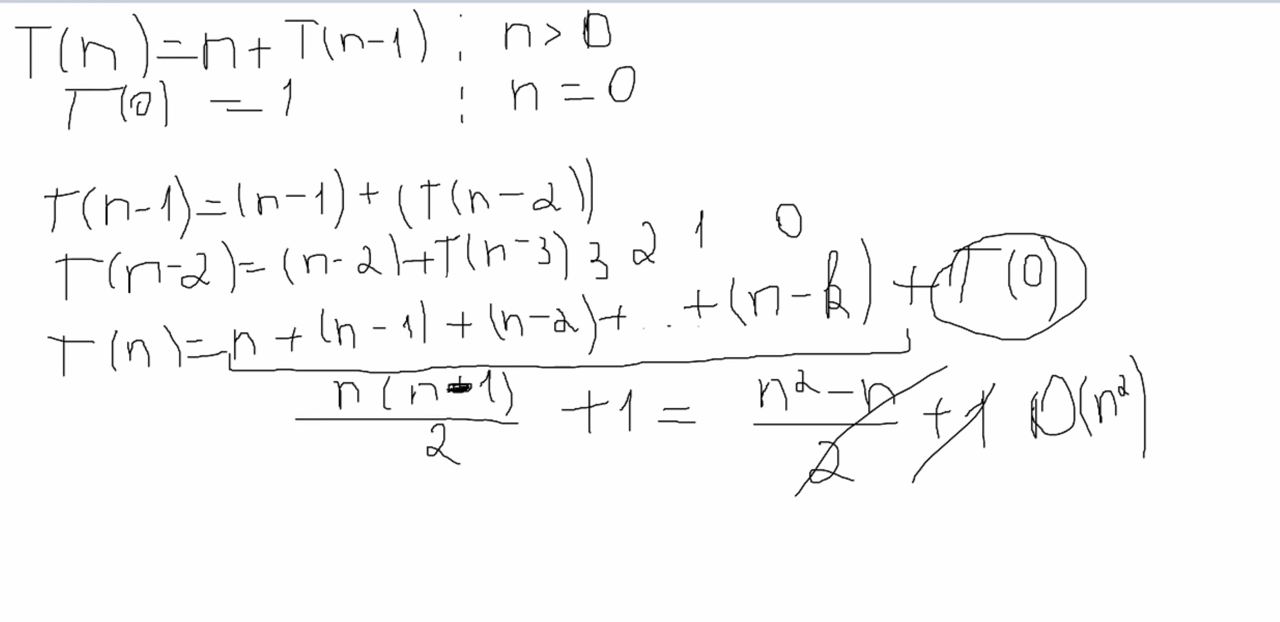 T(n)=n+T(n-1) ; n>0
T(0) = 1 ; n=0
T(n-1)=(n-1)+(T(n-2))
T(n-2)=(n-2)+T(n-3) 3 2 1 0
T(n)=n+(n-1)+(n-2)+...+(n-k)+T(0)
n(n-1)/2 +1= n²-n/2 +1 O(n²)